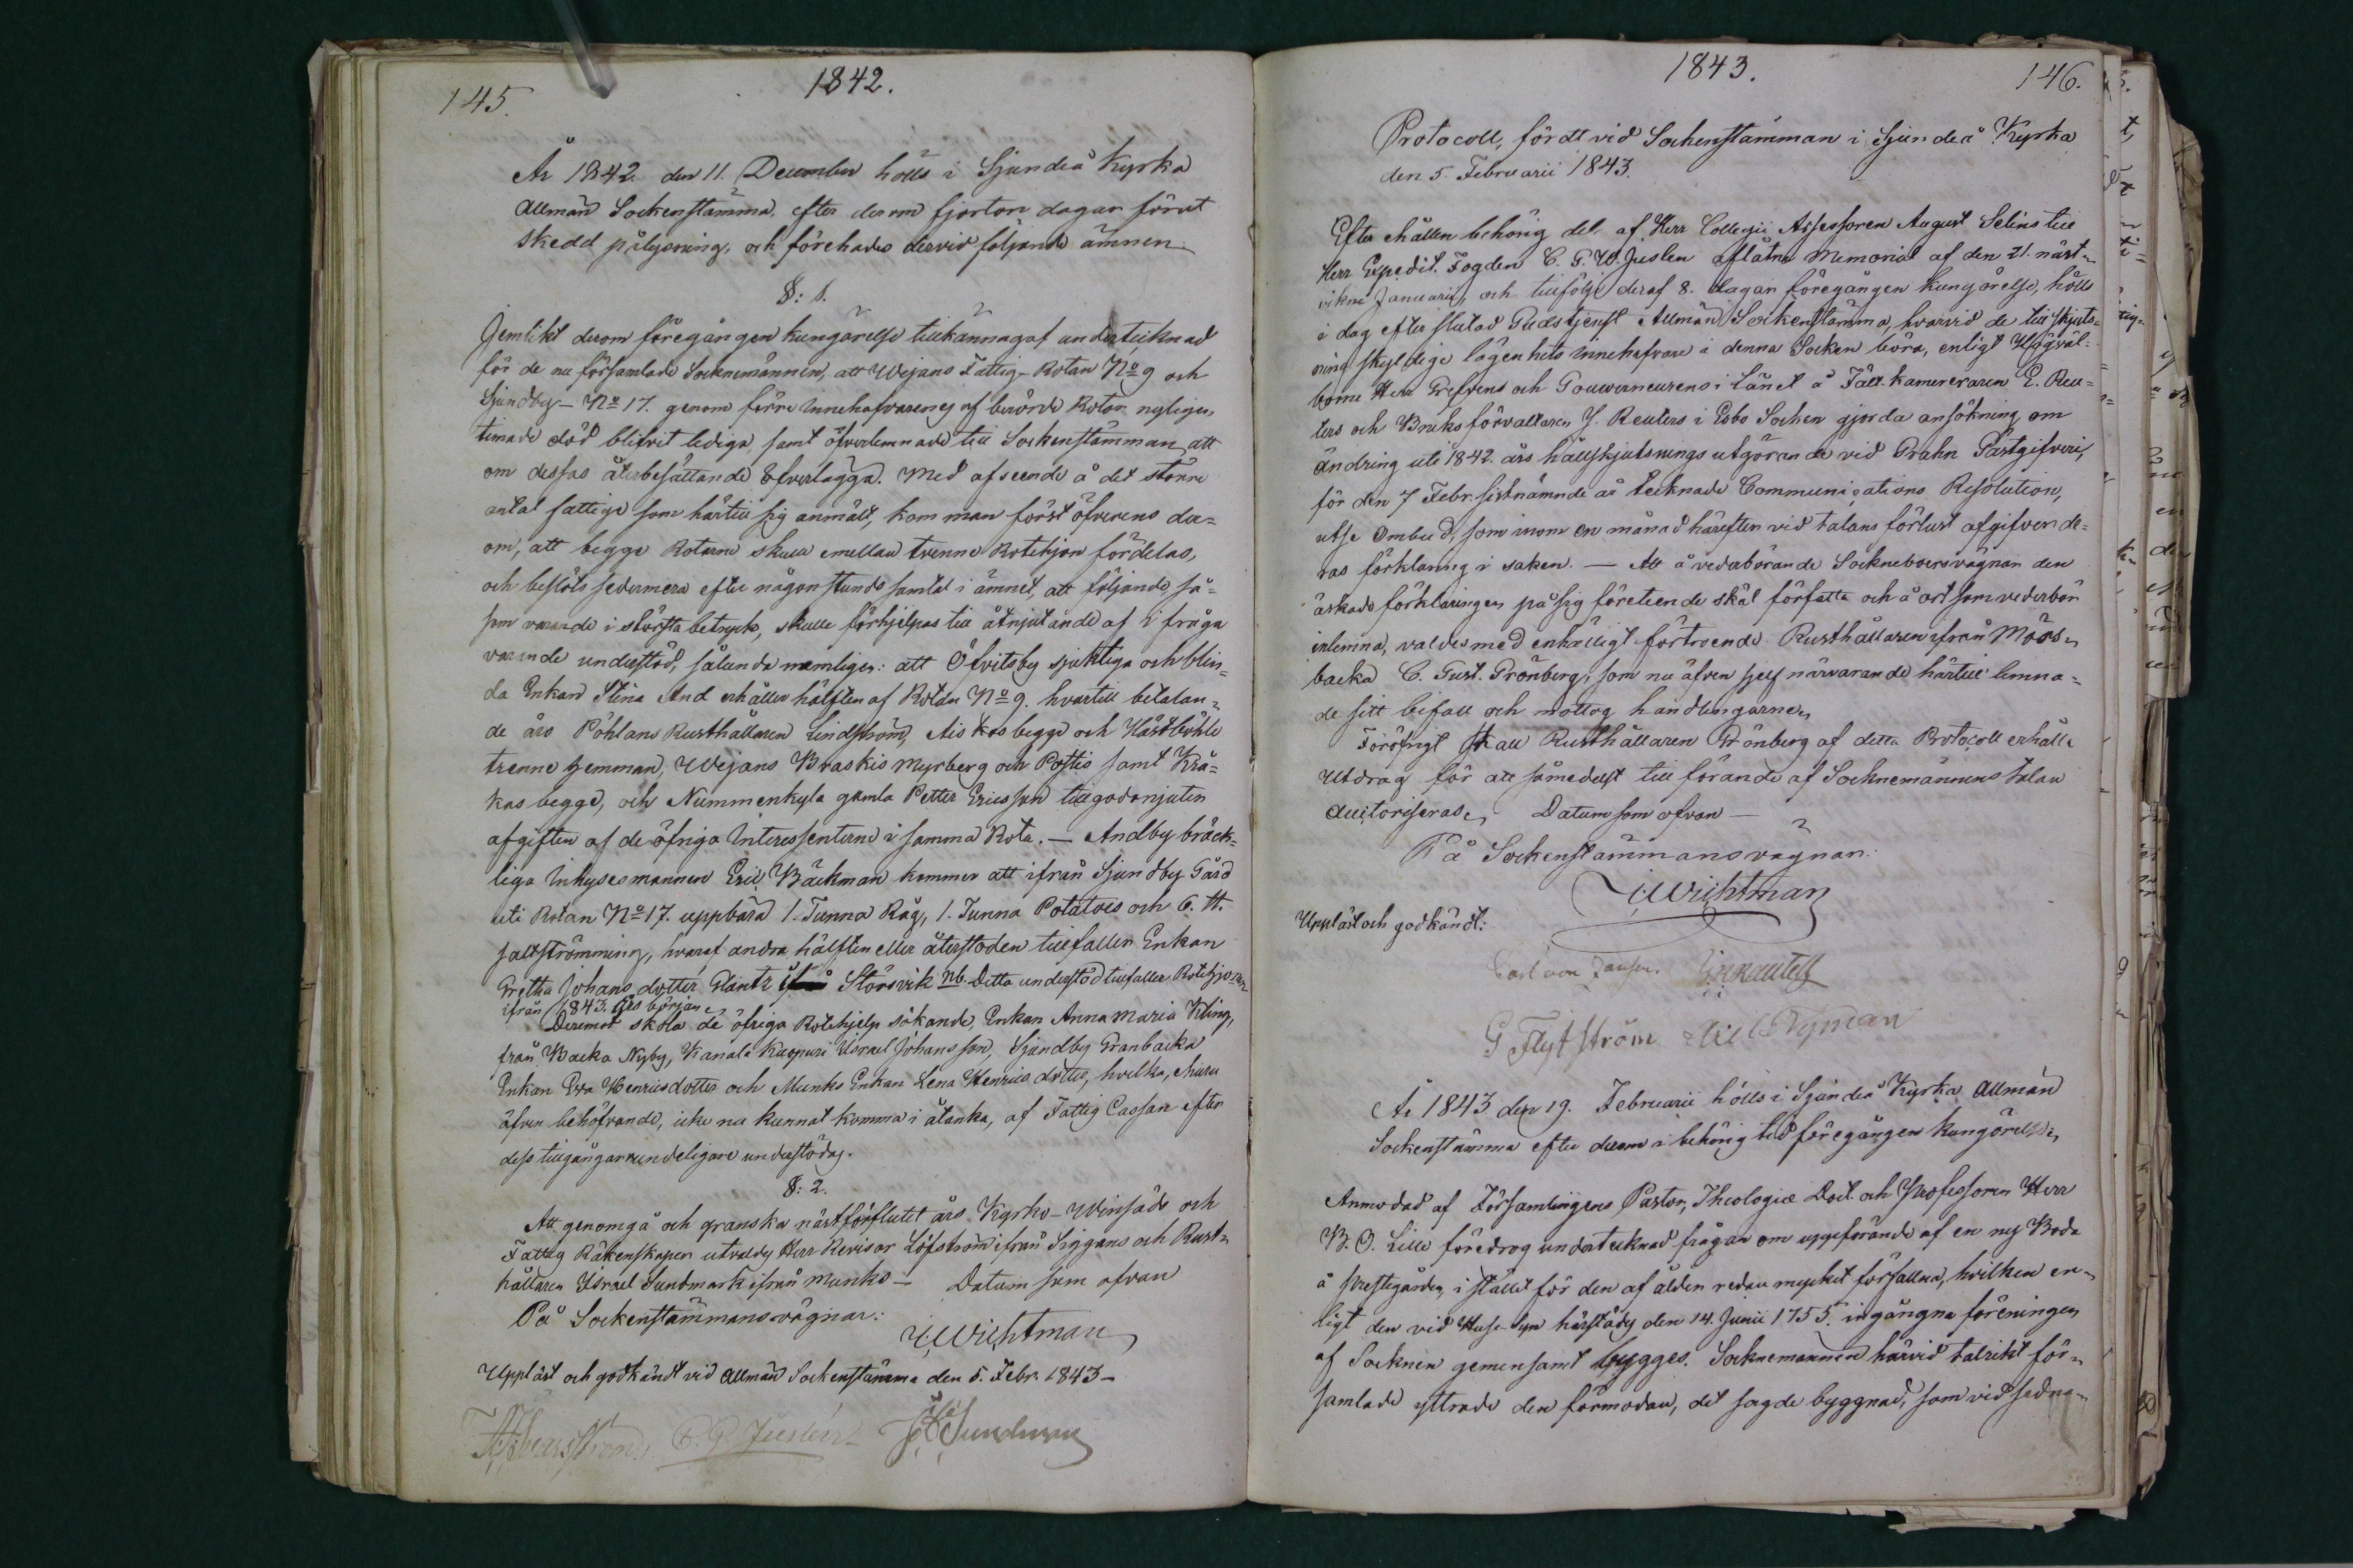 145.
1842.
År 1842 den 11. December hölls i Sjundeå Kyrka
Allmän Sockenstämma, efter derom fjorton dagar förut
skedd pålysning, och förehades dervid följande ämnen.
§: 1.
Jemlikt derom föregången kungörelse tillkännagaf undertecknad
för de nu församlade Socknemännen, att Wejans Fattig-Rotan No 9 och
Sjundby - No 17. genom förre innehafvarenes af berörde Rotor nyligen
timade död blifvit lediga, samt öfverlemnade till Sockenstämman att
om dessas återbesättande öfverlägga. Med afseende å det större
antal fattige som härtill sig anmält, kom man först öfverens der-
om, att begge Rotarne skulle emellan tvenne Rotehjon fördelas,
och beslöts sedermera efter någon stunds samtal i ämnet, att följande, så-
som varande i största betryck, skulle förhjelpas till åtnjutande af i fråga
varande understöd, sålunda nemligen: att Öfvitsby sjukliga och blin-
da Enkan Stina And erhåller hälften af Rotan No 9. hvartill betalan-
de äro Pöhlans Rusthållaren Lindström, Aiskos begge och Hästböhle
trenne hemman, Wejans Braskis Myrberg och Postis samt Krä-
kas begge, och Nummenkyla gamla Petter Ericsson tillgodonjuter
afgiften af de öfriga Interessenterne i samma Rota. — Andby bräck-
liga Inhysesmannen Eric Bäckman kommer att ifrån Sjundby Gård
uti Rotan No 17. uppbära 1. Tunna Råg, 1. Tunna Potatoes och 6. ℔.
saltströmming, hvaraf andra hälften eller återstoden tillfaller Enkan
Gretha Johansdotter Glantz Störsvik NB. Detta understöd tillfaller Rotehjonen
ifrån 1843. års början.
Deremot skola de öfriga Rotehjelp sökande, Enkan Anna Maria Kling,
från Backa Nyby, Kanala Kuopuri Israel Johansson, Sjundby Granbacka
Enkan Eva Henricsdotter och Munks Enkan Lena Henricsdotter, hvilka, ehuru
äfven behöfvande, icke nu kunnat komma i åtanka, af Fattig Cassan efter
dess tillgångar undeligare understödas.
§: 2.
Att genomgå och granska nästförflutet års Kyrko- Winsäds och
Fattig Räkenskaper utvaldes Herr Revisor Löfström ifrån Siggans och Rust-
hållaren Israel Sundmark ifrån Munks — Datum som ofvan
På Sockenstämmans vägnar:
J. Wichtman
Uppläst och godkändt vid Allmän Sockenstämma den 5. Febr. 1843 —
C. G. Juslén
1843.
146.
Protocoll, fördt vid Sockenstämman i Sjundeå Kyrka
den 5. Februarii 1843.
Efter erhållen behörig del, af Herr Collegii Assessoren August Selins till
Herr Expedit. Fogden C. G. W. Juslen aflåtne Memorial af den 21. näst-
vikne Januarii, och tillfölje deraf 8. dagar föregången kungörelse, hölls
i dag efter slutad Gudstjenst Allmän Sockenstämma, hvarvid de till skjuts-
ning skyldige lägenhets innehafvare i denna Socken böra, enligt Högväl-
borne Herr Grefvens och Gouverneurens i Länet å Fält-kamereraren E. Reu-
ters och Bruksförvaltaren J. Reuters i Esbo Socken gjorda ansökning om
ändring uti 1842. års hållskjutsnings utgörande vid Grahn Gästgifveri,
för den 7 Febr. sistnämnde år tecknade Communications Resolution,
utse Ombud, som inom en månad härefter vid talans förlust afgifver de-
ras förklaring i saken. — Att å vederbörande Sockneboers vägnar den
äskade förklaringen på sig företeende skäl författa och å ort som vederbör
inlemna, valdes med enhälligt förtroende Rusthållaren ifrån Mörs-
backa C. Gust. Grönberg, som nu äfven sjelf närvarande härtill lemna-
de sitt bifall och mottog handlingarne.
Föröfrigt skall Rusthållaren Grönberg af detta Protocoll erhålla
Utdrag för att såmedelst till förande af Socknemännens talan
auctoriseras. Datum som ofvan —
På Sockenstämmans vägnar:
J. Wichtman
Uppläst och godkändt:
Carl von Jansen.
G Flytström Nyman
År 1843 den 19. Februarii hölls i Sjundeå Kyrka Allmän
Sockenstämma efter derom i behörig tid föregången kungörelse.
Anmodad af Församlingens Pastor, Theologiæ Doct. och Professoren Herr
B. O. Lille föredrog undertecknad frågan om uppförande af en ny Boda
å Prestegården, i stället för den af ålder redan mycket förfallna, hvilken en-
ligt den vid Huse-syn härstädes den 14. Junii 1755. ingångna föreningen
af Socknen gemensamt bygges. Socknemännen härvid talrikt för-
samlade yttrade den förmodan, det sagde byggnad, som vid sedna-